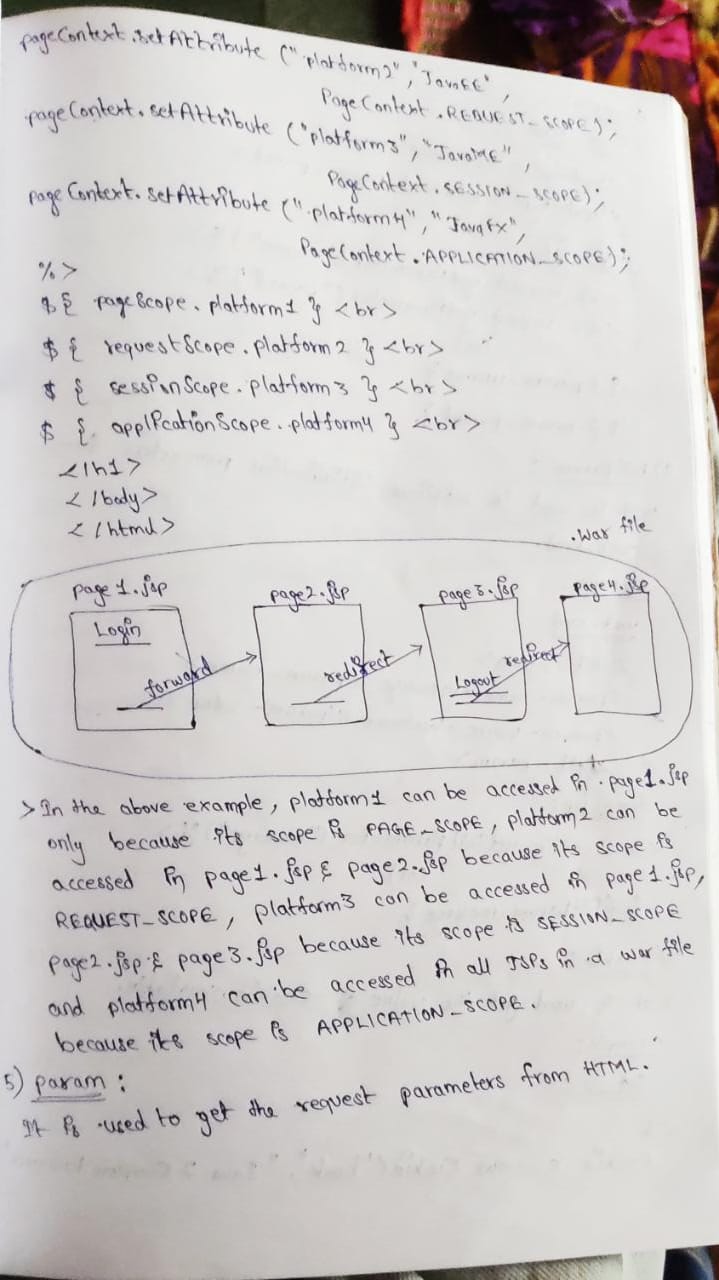 pageContext.setAttribute ("platform2","JavaEE",
PageContext.REQUEST_SCOPE);
pageContext.setAttribute ("platform3","JavaME",
PageContext.SESSION_SCOPE);
pageContext.setAttribute ("platform4","JavaFx",
PageContext.APPLICATION_SCOPE);
%>
${ pageScope.platform1 } <br>
${ requestScope.platform2 } <br>
${ sessionScope.platform3 } <br>
${ applicationScope.platform4 } <br>
</h1>
</body>
</html>
.war file
page1.jsp page2.jsp page3.jsp page4.jsp
Login
forward redirect redirect
Logout
> In the above example, platform1 can be accessed in page1.jsp
only because its scope is PAGE_SCOPE, platform2 can be
accessed in page1.jsp & page2.jsp because its scope is
REQUEST_SCOPE, platform3 can be accessed in page1.jsp,
page2.jsp & page3.jsp because its scope is SESSION_SCOPE
and platform4 can be accessed in all JSPs in a war file
because its scope is APPLICATION_SCOPE.
5) param:
It is used to get the request parameters from HTML.